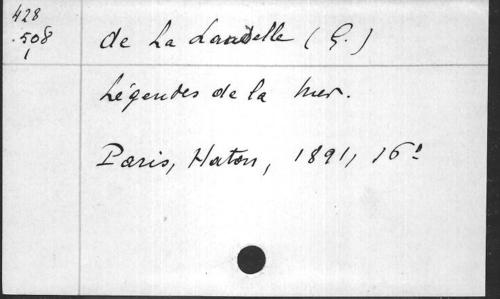 428
.508
1
de La Landelle (G.)
Légendes de la Mer.
Paris, Haton, 1891, 16º